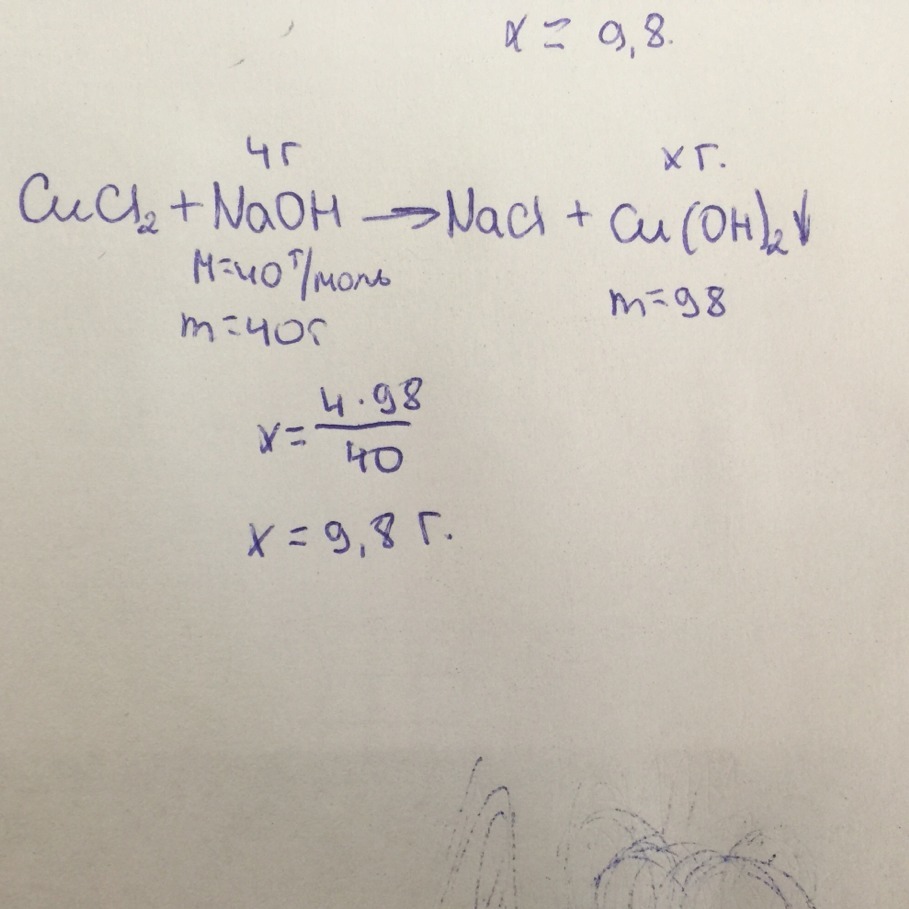 x = 9,8.
4г
x г.
CuCl₂ + NaOH → NaCl + Cu(OH)₂↓
M=40 г/моль
m=98
m=40г
x = 4·98 / 40
x = 9,8 г.